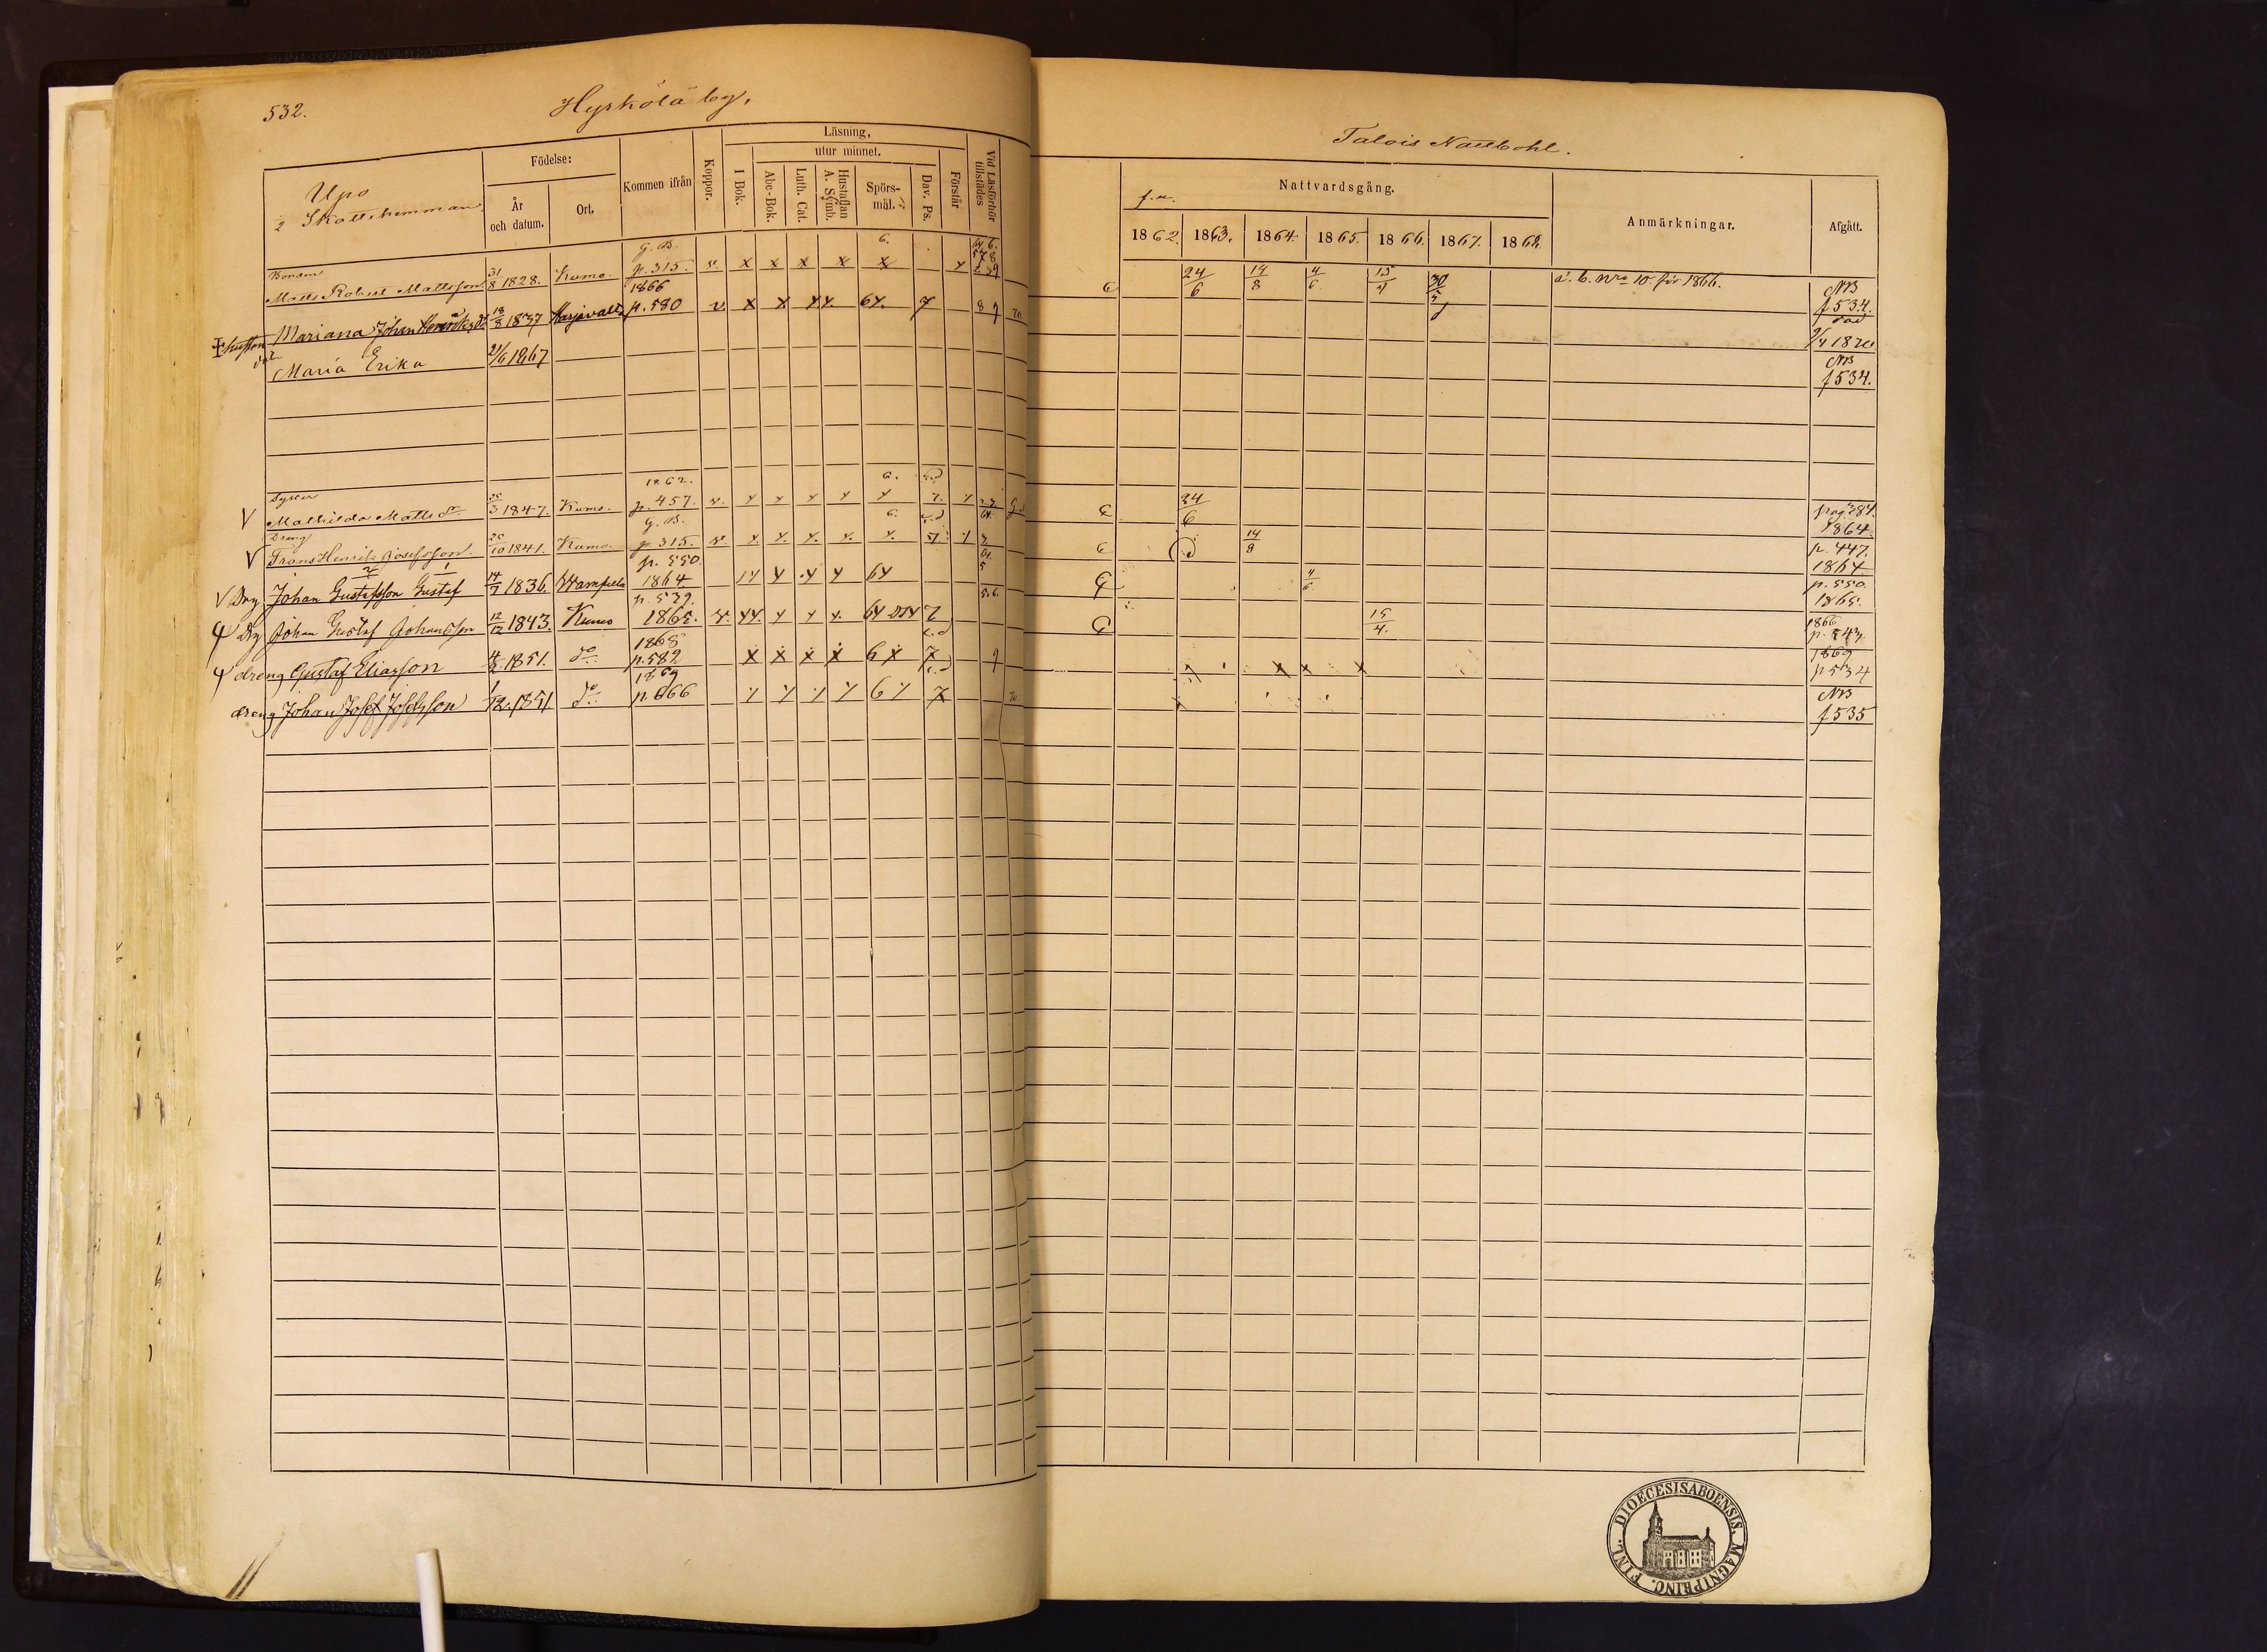 532.
Hyrkölä by.
Talois Nautbohl.
Upo
½ Skattehemman.
Födelse:
År
och datum.
Ort.
Kommen ifrån
Koppor.
Läsning,
I Bok.
utur minnet.
Abc-Bok.
Luth. Cat.
Hustaflan
A. Symb.
Spörs-
mål.
Dav. Ps.
Förstår
Vid Läsförhör
tillstädes
f.u.
Nattvardsgång.
1862. 1863. 1864. 1865. 1866. 1867. 1868.
Anmärkningar.
Afgått.
Bonden g. B. 6.
Matts Robert Mattsson 31/8 1828. Kumo. p. 315. v. x x x x x 24/6 14/8 4/6 15/4 30/5 a. b. Nro 10. för 1866. NB f 534.
1866
hustron Mariana Johan Henriksdr 18/8 1837 Harjavalta p. 580 v. x x 64. 7 8 9 70. död 9/4 1870
dr Maria Erika 21/6 1867 NB f 534.
Syster 1862. 6.
V Mathilda Matts dr 3 1847. Kumo. p. 457. v. 24/6 pag. 384. 1864.
Dreng g. B. 6.
V Frans Henrik Josefsson 10 1841. Kumo. p. 315. v. 14/8 p. 447. 1864
p. 550.
V Drg Johan Gustafsson Gustaf 14/7 1836. 1864 4/6 p. 550. 1865.
p. 539.
Drg Johan Gustaf Johansson 12/12 1843. Kumo 1865. 15/4. 1866 p. 543.
1868
dreng Gustaf Eliasson 4/8 1851. do p. 589 9 1869 p 534
1869
dreng Johan Josef Josefsson 1/12 1851 do p. 666 70. NB f 535
FINL. DIOECESIS ABOENSIS. MAGNI PRINC.